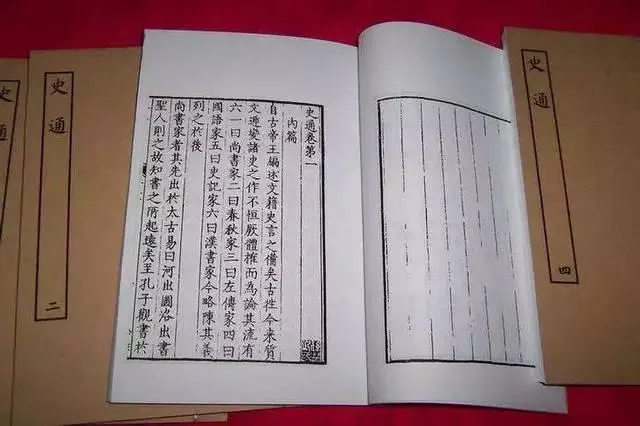 史通
四
史通卷第一
內篇
自古帝王編述文籍史言之備矣古往今来質
文遞變諸史之作不恒厥體榷而為論其流有
六一曰尚書家二曰春秋家三曰左傳家四曰
國語家五曰史記家六曰漢書家今略陳其義
列之於後
尚書家者其先出於太古易曰河出圖洛出書
聖人則之故知書之所起遠矣至孔子觀書於
史通
二
史通